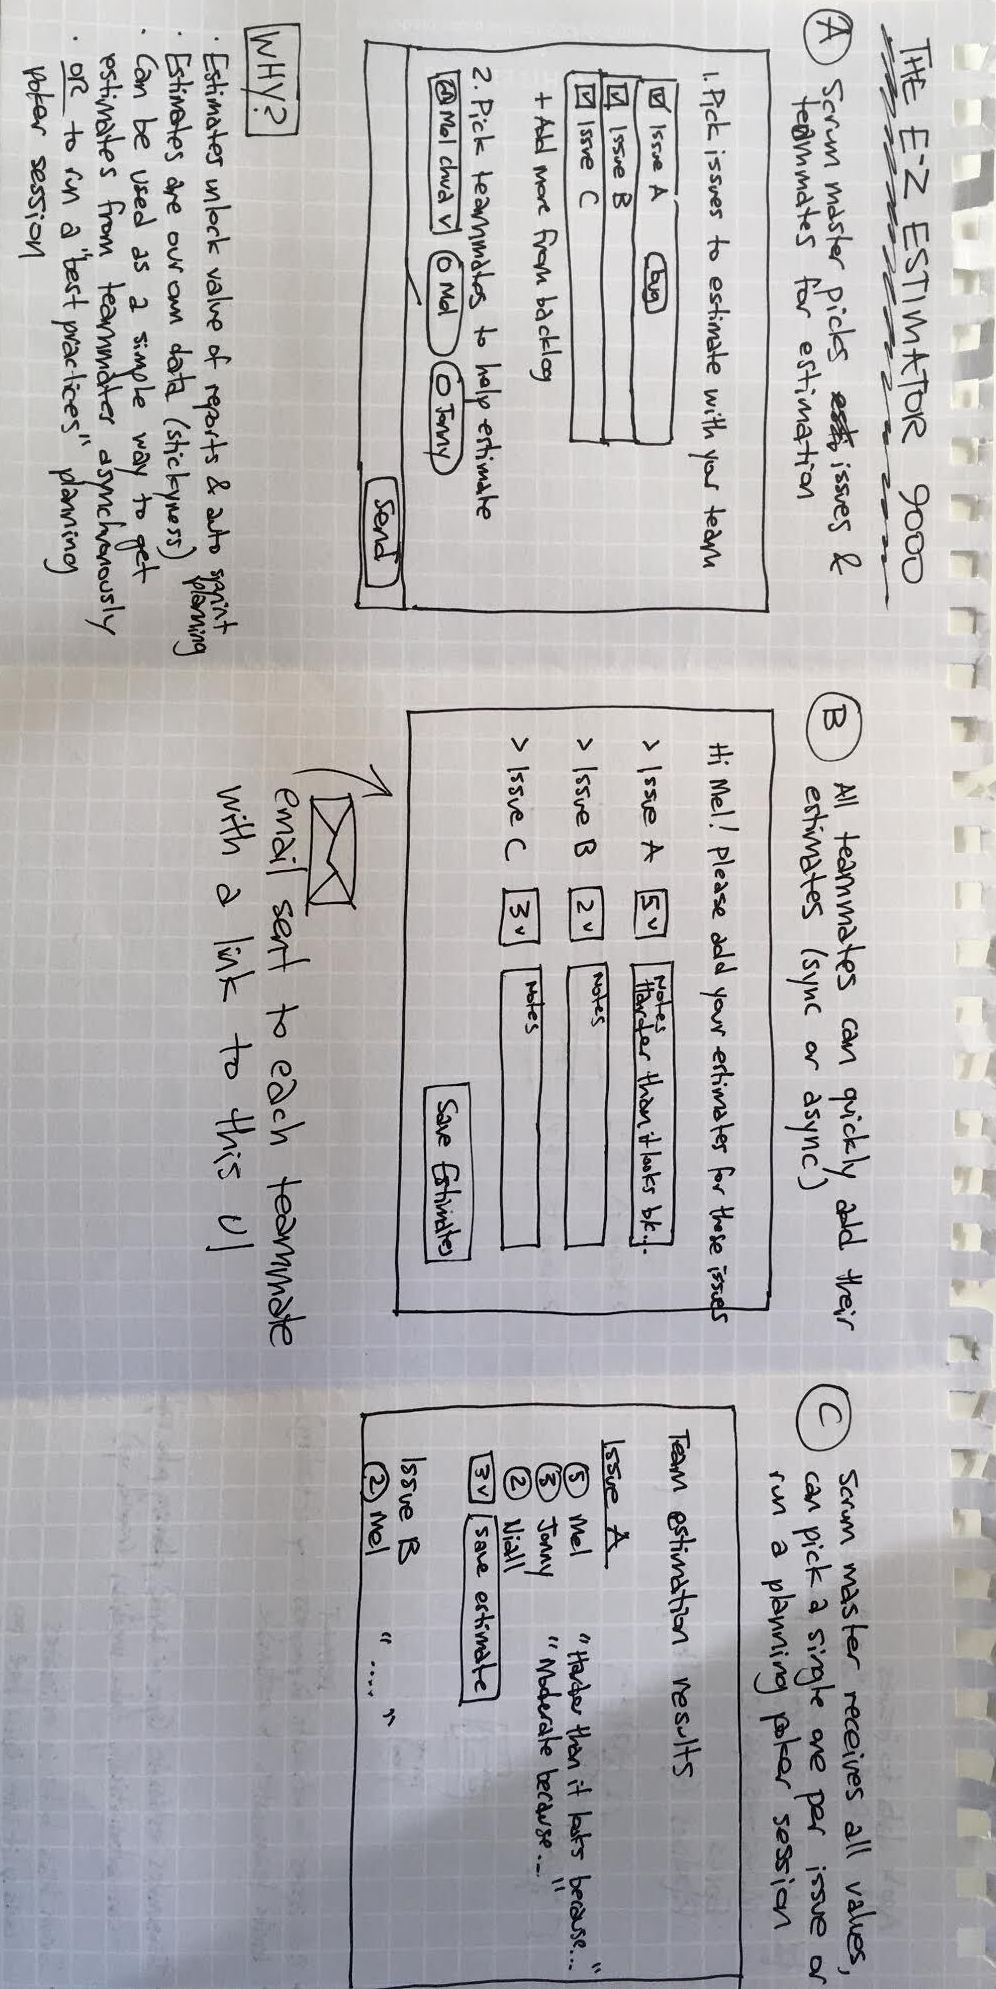 THE E-Z ESTIMATOR 9000
A
Scrum master picks issues &
teammates for estimation
1. Pick issues to estimate with your team
Issue A bug
Issue B
Issue C
+ Add more from backlog
2. Pick teammates to help estimate
Mel chua v Mel Jonny
Send
WHY?
· Estimates unlock value of reports & auto sprint
planning
· Estimates are our own data (stickyness)
· Can be used as a simple way to get
estimates from teammates asynchronously
· or to run a "best practices" planning
poker session
B
All teammates can quickly add their
estimates (sync or async)
Hi Mel! please add your estimates for these issues
> Issue A 5 v Notes
Harder than it looks bk...
> Issue B 2 v Notes
> Issue C 3 v Notes
Save Estimates
email sent to each teammate
with a link to this UI
C
Scrum master receives all values,
can pick a single one per issue or
run a planning poker session
Team estimation results
Issue A
5 Mel "Harder than it looks because..."
3 Jonny "Moderate because..."
2 Niall
3 v save estimate
Issue B
2 Mel "...."